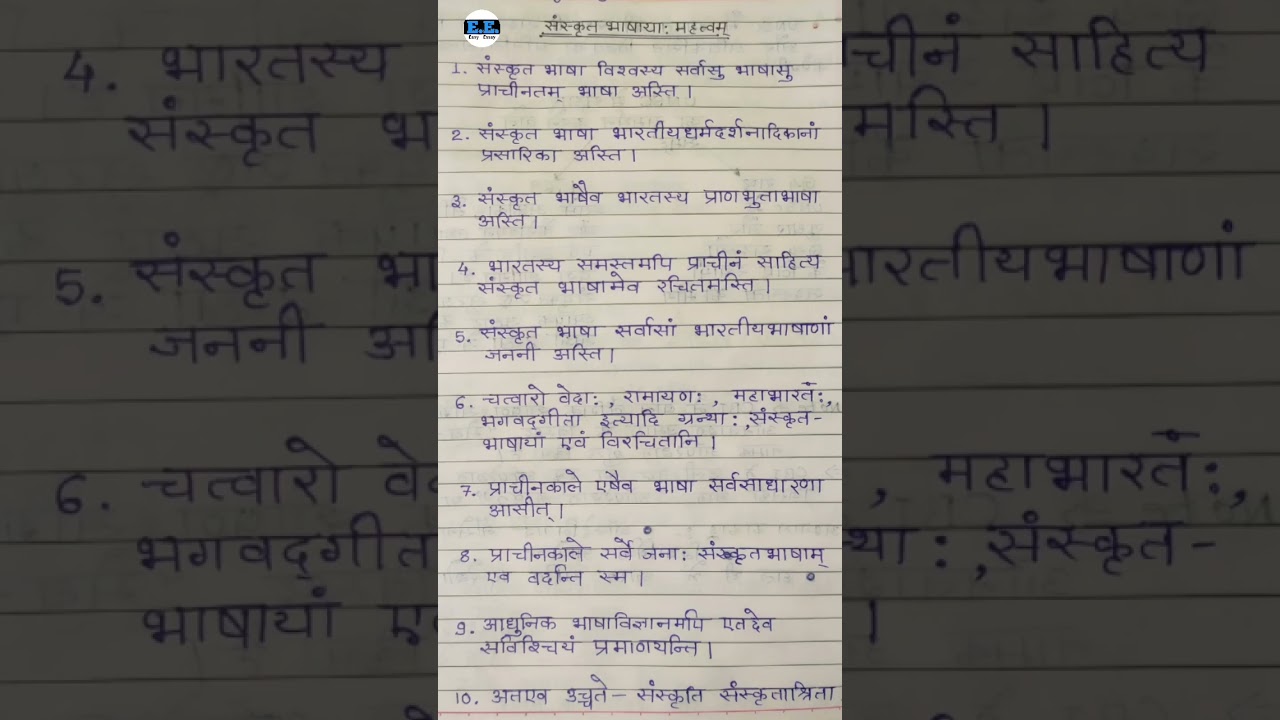 E.E.
Easy Essay
संस्कृत भाषाया: महत्वम्
1. संस्कृत भाषा विश्वस्य सर्वासु भाषासु
प्राचीनतम् भाषा अस्ति।
2. संस्कृत भाषा भारतीयधर्मदर्शनादिकानां
प्रसारिका अस्ति।
३. संस्कृत भाषैव भारतस्य प्राणभुताभाषा
अस्ति।
4. भारतस्य समस्तमपि प्राचीनं साहित्य
संस्कृत भाषामेव रचितमस्ति।
5. संस्कृत भाषा सर्वासां भारतीयभाषाणां
जननी अस्ति।
6. चत्वारो वेदा:, रामायण:, महाभारतं:,
भगवद्गीता इत्यादि ग्रन्था:,संस्कृत-
भाषायां एवं विरचितानि।
7. प्राचीनकाले एषैव भाषा सर्वसाधारणा
आसीत्।
8. प्राचीनकाले सर्वे जना: संस्कृतभाषाम्
एव वदन्ति स्म।
9. आधुनिक भाषाविज्ञानमपि एतदेव
सविश्चियं प्रमाणयन्ति।
10. अतएव उच्चते- संस्कृति संस्कृताश्रिता